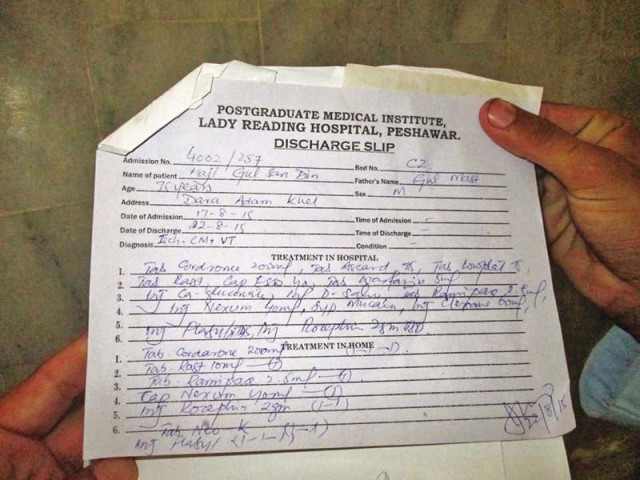 POSTGRADUATE MEDICAL INSTITUTE,
LADY READING HOSPITAL, PESHAWAR.
DISCHARGE SLIP
Admission No. 4002/257 Bed No. C2
Name of patient Haji Gul San Din Father's Name Gul Mast
Age 75 years Sex M
Address Dara Adam Khel
Date of Admission 17-8-15 Time of Admission -
Date of Discharge 22-8-15 Time of Discharge -
Diagnosis Isch. CM, VT Condition -
TREATMENT IN HOSPITAL
1. Tab Cordrone 200mg, Tab Ascard 75, Tab Lowplat 75
2. Tab Rast, Cap Esso, Tab 5mg
3. Inj Ca-gluconate, Inf D-Saline, Tab Ramipace 2.5mg
4. Inj Nexum 40mg, Syp Mucain, Inj Clexane 60mg,
5.
6. Inj Flagyl, Inj Rocephin 2gm
TREATMENT IN HOME
1. Tab. Cordarone 200mg (1-1-1)
2. Tab. Rast 10mg
3. Tab. Ramipace 2.5mg
4. Cap Nexum 40mg
5. Inj Rocephin 2gm (1-1)
6. Tab Neo K (1-1)
Inj Flagyl (1-1-1)
22/8/15